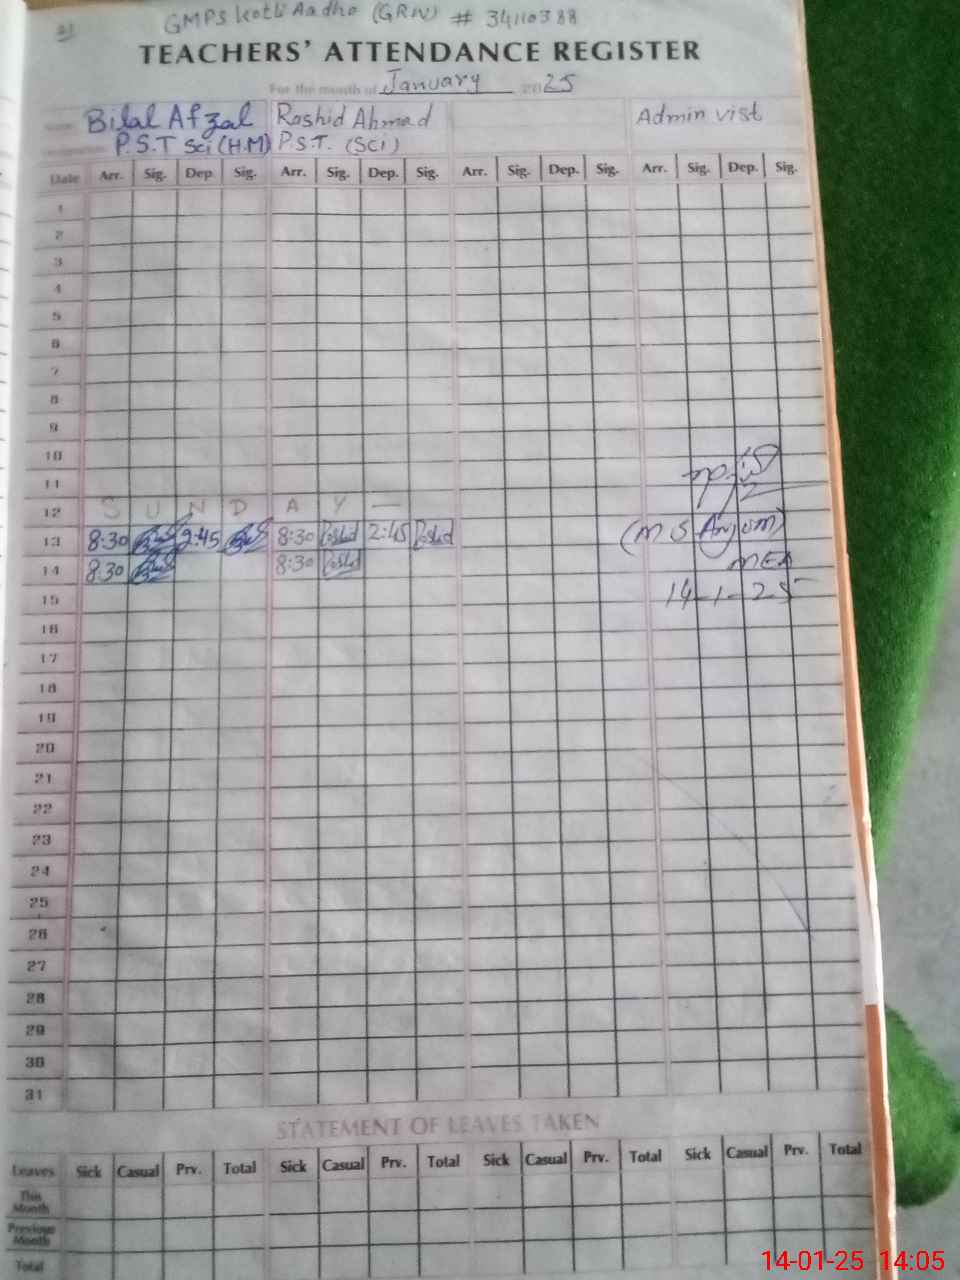 21 GMPS Kotli Aadha (GRW) # 34110388
TEACHERS' ATTENDANCE REGISTER
For the month of January 2025
Name Bilal Afzal Rashid Ahmad Admin vist
P.S.T Sci (H.M) P.S.T. (SCI)
Date Arr. Sig. Dep. Sig. Arr. Sig. Dep. Sig. Arr. Sig. Dep. Sig. Arr. Sig. Dep. Sig.
1
2
3
4
5
6
7
8
9
10
11
12 S U N D A Y —
13 8:30 2:45 8:30 Rashid 2:45 Rashid (M S Anjum)
14 8:30 8:30 Rashid MEA
15 14-1-25
16
17
18
19
20
21
22
23
24
25
26
27
28
29
30
31
STATEMENT OF LEAVES TAKEN
Leaves Sick Casual Prv. Total Sick Casual Prv. Total Sick Casual Prv. Total Sick Casual Prv. Total
This Month
Previous Month
Total
14-01-25 14:05